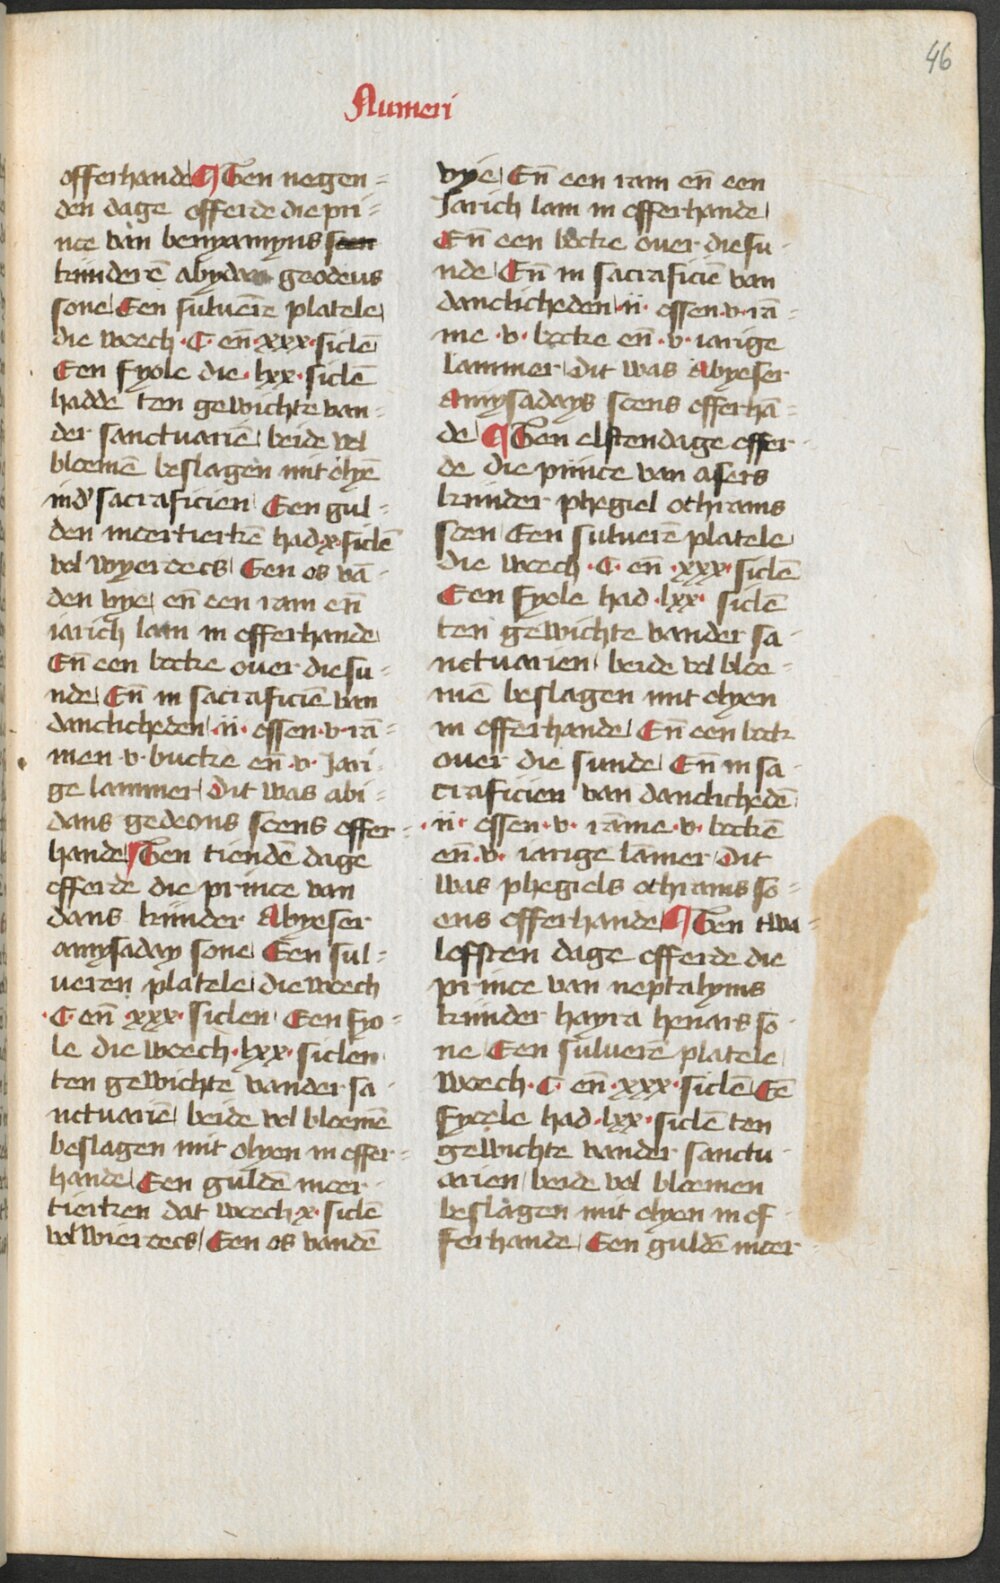 46
Numeri
offerhande ¶ Ten negen=
den dage offerde die pri=
nce van benyamyns soen
kinderē abydan geodeus
sone Een suluerē platele
die woech ·C· en̄ ·xxx· siclē
Een fyole die ·lxx· siclē
hadde ten gewichte van=
der sanctuariē beide vol
bloemē beslagen mit olyē
ind' sacraficien Een gul=
den mortierkē had ·x· siclē
vol wyeroecs Een os vā=
den vye en̄ een ram en̄
iarich lam in offerhande
En̄ een bocke ouer die su=
nde En̄ in sacraficiē van
danclicheden ·ii· ossen ·v· rā=
men ·v· bucke en̄ ·v· Jari=
ge lammer Dit was abi=
dans gedeons soens offer=
hande ¶ Ten tiendē dage
offerde die prince van
dans kinder Abyeser
amysaday sone Een sul=
ueren platele die woech
·C· en̄ ·xxx· siclen Een fyo=
le die woech ·lxx· siclen
ten gewichte vander sa=
nctuariē beide vol bloemē
beslagen mit olyen in offer=
hande Een guldē moer=
tierken dat woech ·x· siclē
vol wieroecs Een os vandē
vye En̄ een ram en̄ een
Jarich lam in offerhande
En̄ een bocke ouer die su=
nde En̄ in sacraficiē van
danclicheden ·ii· ossen ·v· rā=
me ·v· bocke en̄ ·v· iarige
lammer Dit was Abyeser
Amysadays soens offerhā=
de ¶ Ten elften dage offer=
de die prince van asers
kinder phegiel othrams
soen Een suluerē platele
die woech ·C· en̄ ·xxx· siclē
Een fyole had ·lxx· siclē
ten gewichte vander sa=
nctuarien beide vol bloe=
mē beslagen mit olyen
in offerhande En̄ een bock
ouer die sunde En̄ in sa=
craficien van danclichedē
·ii· ossen ·v· rāme ·v· bockē
en̄ ·v· iarige lāmer Dit
was phegiels othrams so=
ens offerhande ¶ Ten twa=
lofsten dage offerde die
prince van neptalyms
kinder hayra henars so=
ne Een suluerē platele
woech ·C· en̄ ·xxx· siclē Eē
fyoele had ·lxx· siclē ten
gewichte vander sanctu=
arien beide vol bloemen
beslagen mit olyen in of=
ferhande Een guldē moer=